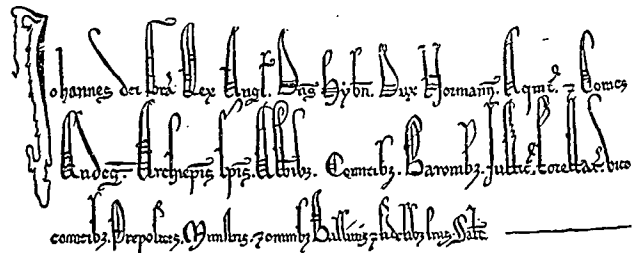 Johannes dei gra Rex Angl. Dns Hybn. Dux Normann. Aquit. ⁊ Comes
Andeg. Archiepis. Epis. Abbibz. Comitibz. Baronibz. Justic. Forestar. vice
comitibz. Prepositis. Ministris. ⁊ omnibz Ballivis ⁊ fidelibz suis. Salt.